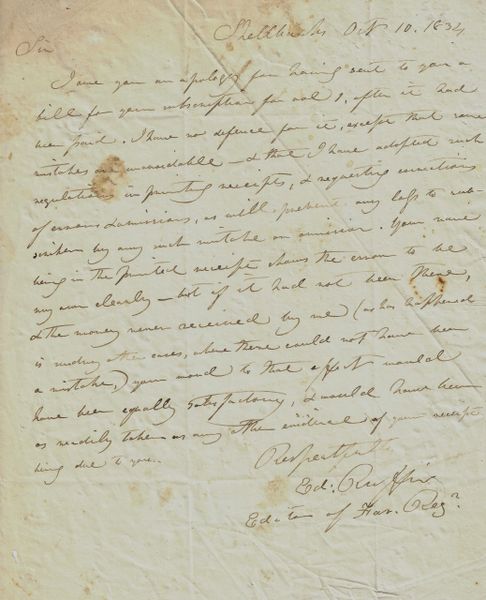 Shellbanks Oct 10. 1834
Sir
I owe you an apology for having sent to you a
bill for your subscription for vol 1, after it had
been paid. I have no defence for it, except that some
mistakes are unavoidable — & that I have adopted such
regulations in printing receipts, & requesting corrections
of errors & omissions, as will prevent any loss to sub-
scribers by any such mistake or omission. Your name
being in the printed receipt shows the error to be
my own clearly — but if it had not been there,
& the money never received by me (as has happened
in many other cases, where there could not have been
a mistake,) your word to that effect would
have been equally satisfactory, & would have been
as readily taken as any other evidence of your receipt
being due to you.
Respectfully
Ed: Ruffin
Editor of Far. Regr.